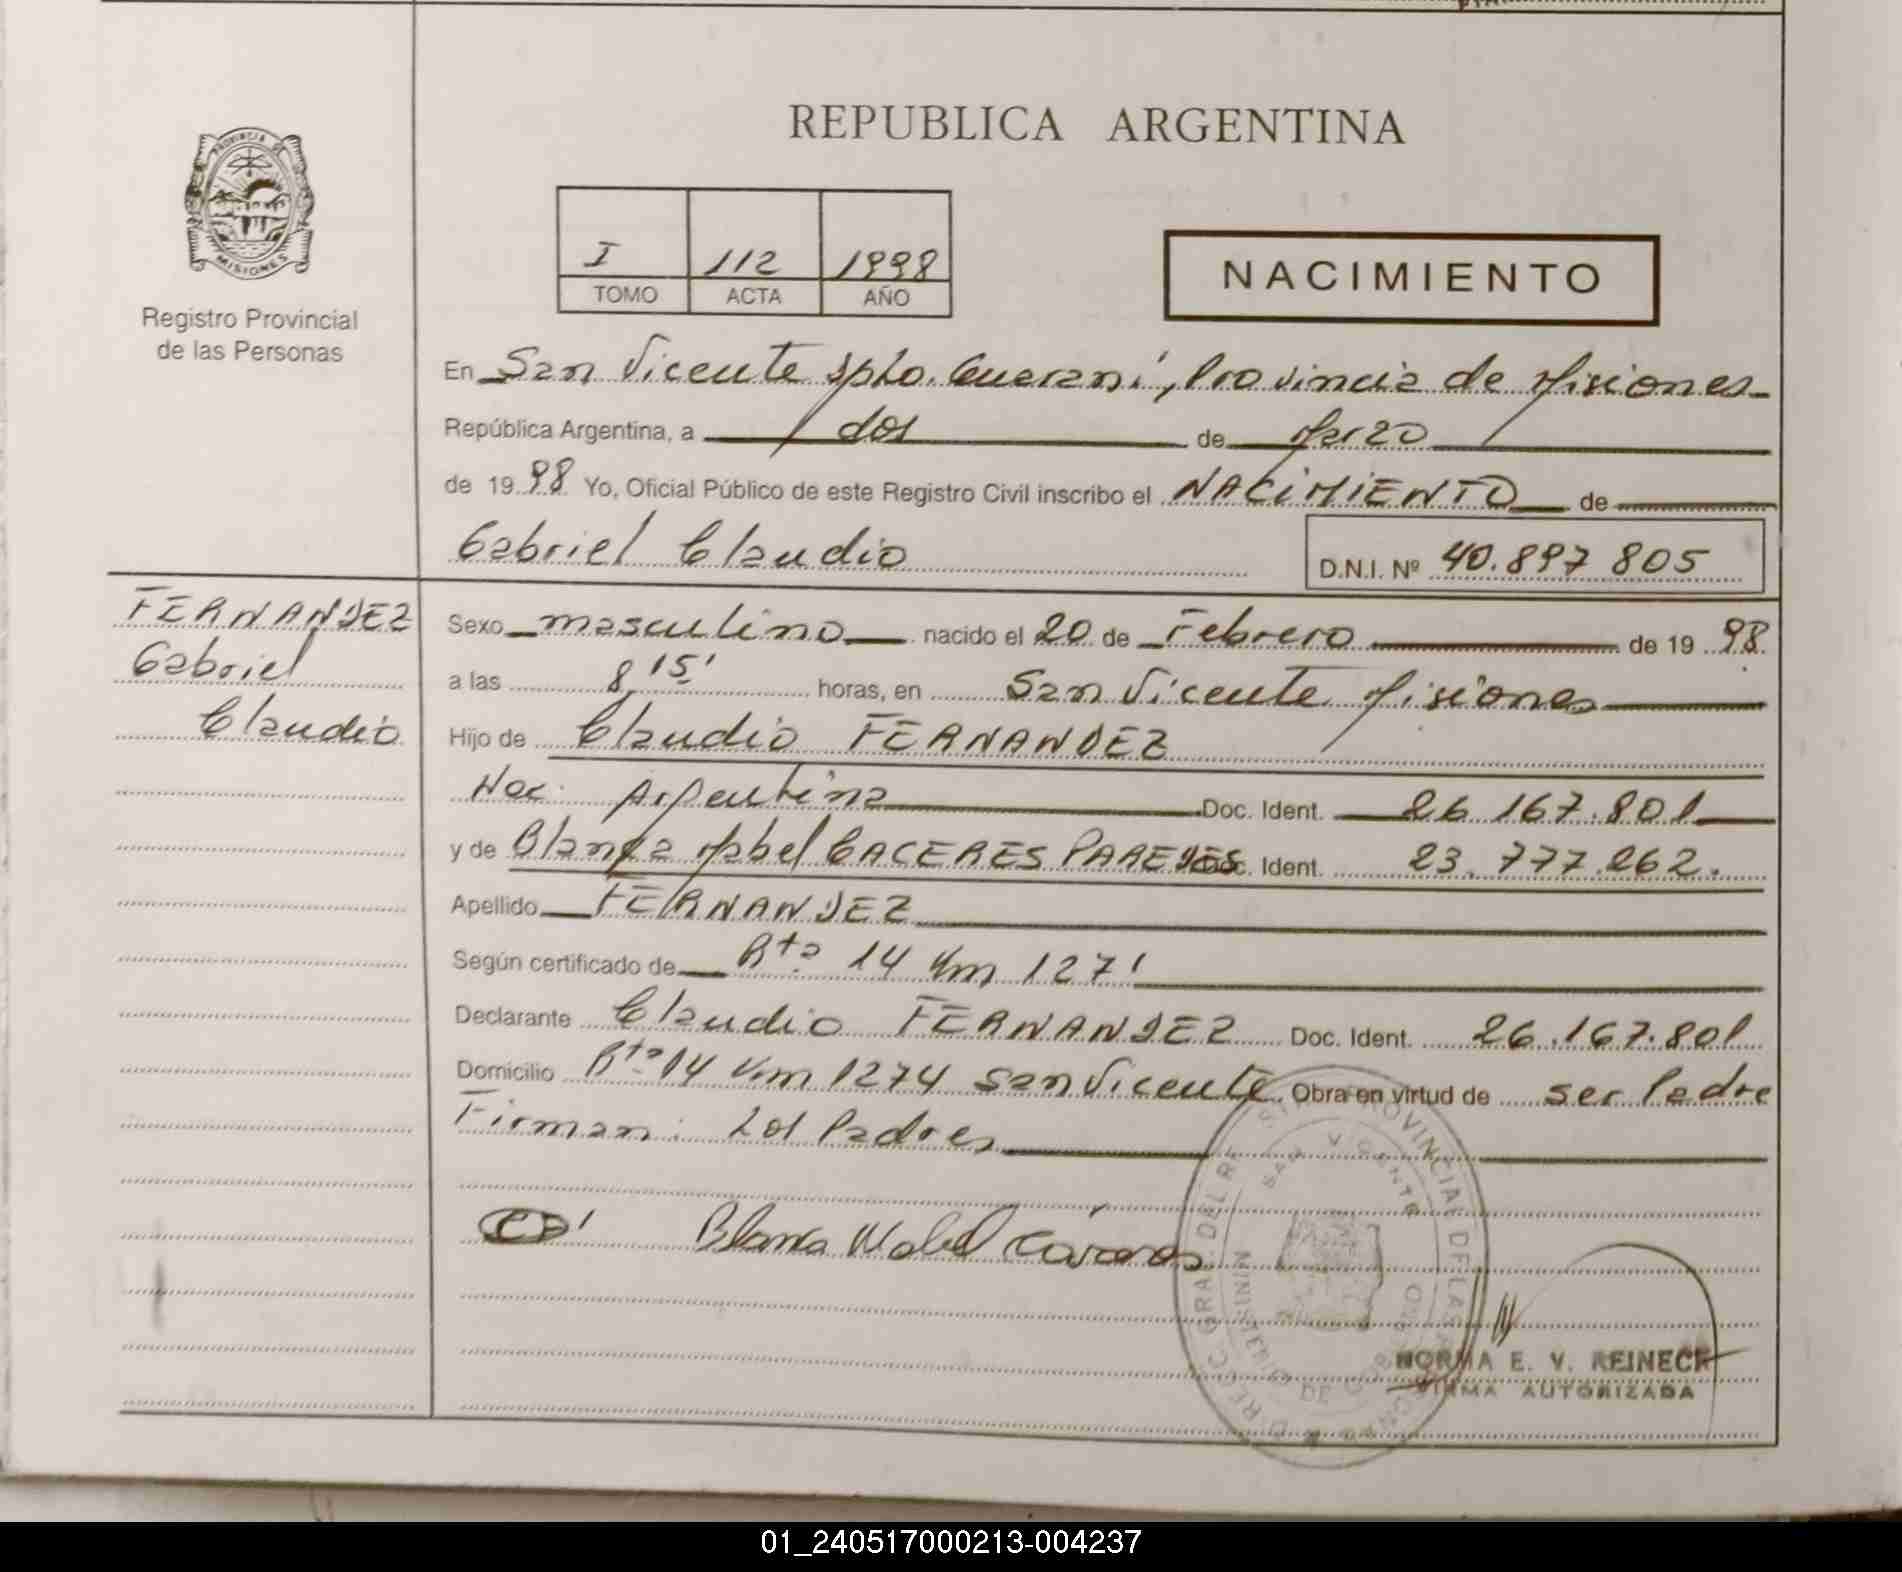 REPUBLICA ARGENTINA
PROVINCIA DE
MISIONES
Registro Provincial
de las Personas
I 112 1998
TOMO ACTA AÑO
NACIMIENTO
En San Vicente Dpto. Guaraní, Provincia de Misiones
República Argentina, a dos de Marzo
de 1998 Yo, Oficial Público de este Registro Civil inscribo el NACIMIENTO de
Gabriel Claudio D.N.I. Nº 40.897 805
FERNANDEZ
Gabriel
Claudio
Sexo masculino nacido el 20 de Febrero de 1998
a las 8,15' horas, en San Vicente Misiones
Hijo de Claudio FERNANDEZ
Nac. Argentina Doc. Ident. 26 167.801
y de Blanca Mabel CACERES PAREDES Doc. Ident. 23.777.262.
Apellido FERNANDEZ
Según certificado de Rta 14 Km 127'
Declarante Claudio FERNANDEZ Doc. Ident. 26.167.801
Domicilio Rta 14 Km 1274 San Vicente Obra en virtud de ser Padre
Firman: Los Padres
Blanca Mabel Caceres
SAN VICENTE
NORMA E. V. REINECK
FIRMA AUTORIZADA
01_240517000213-004237